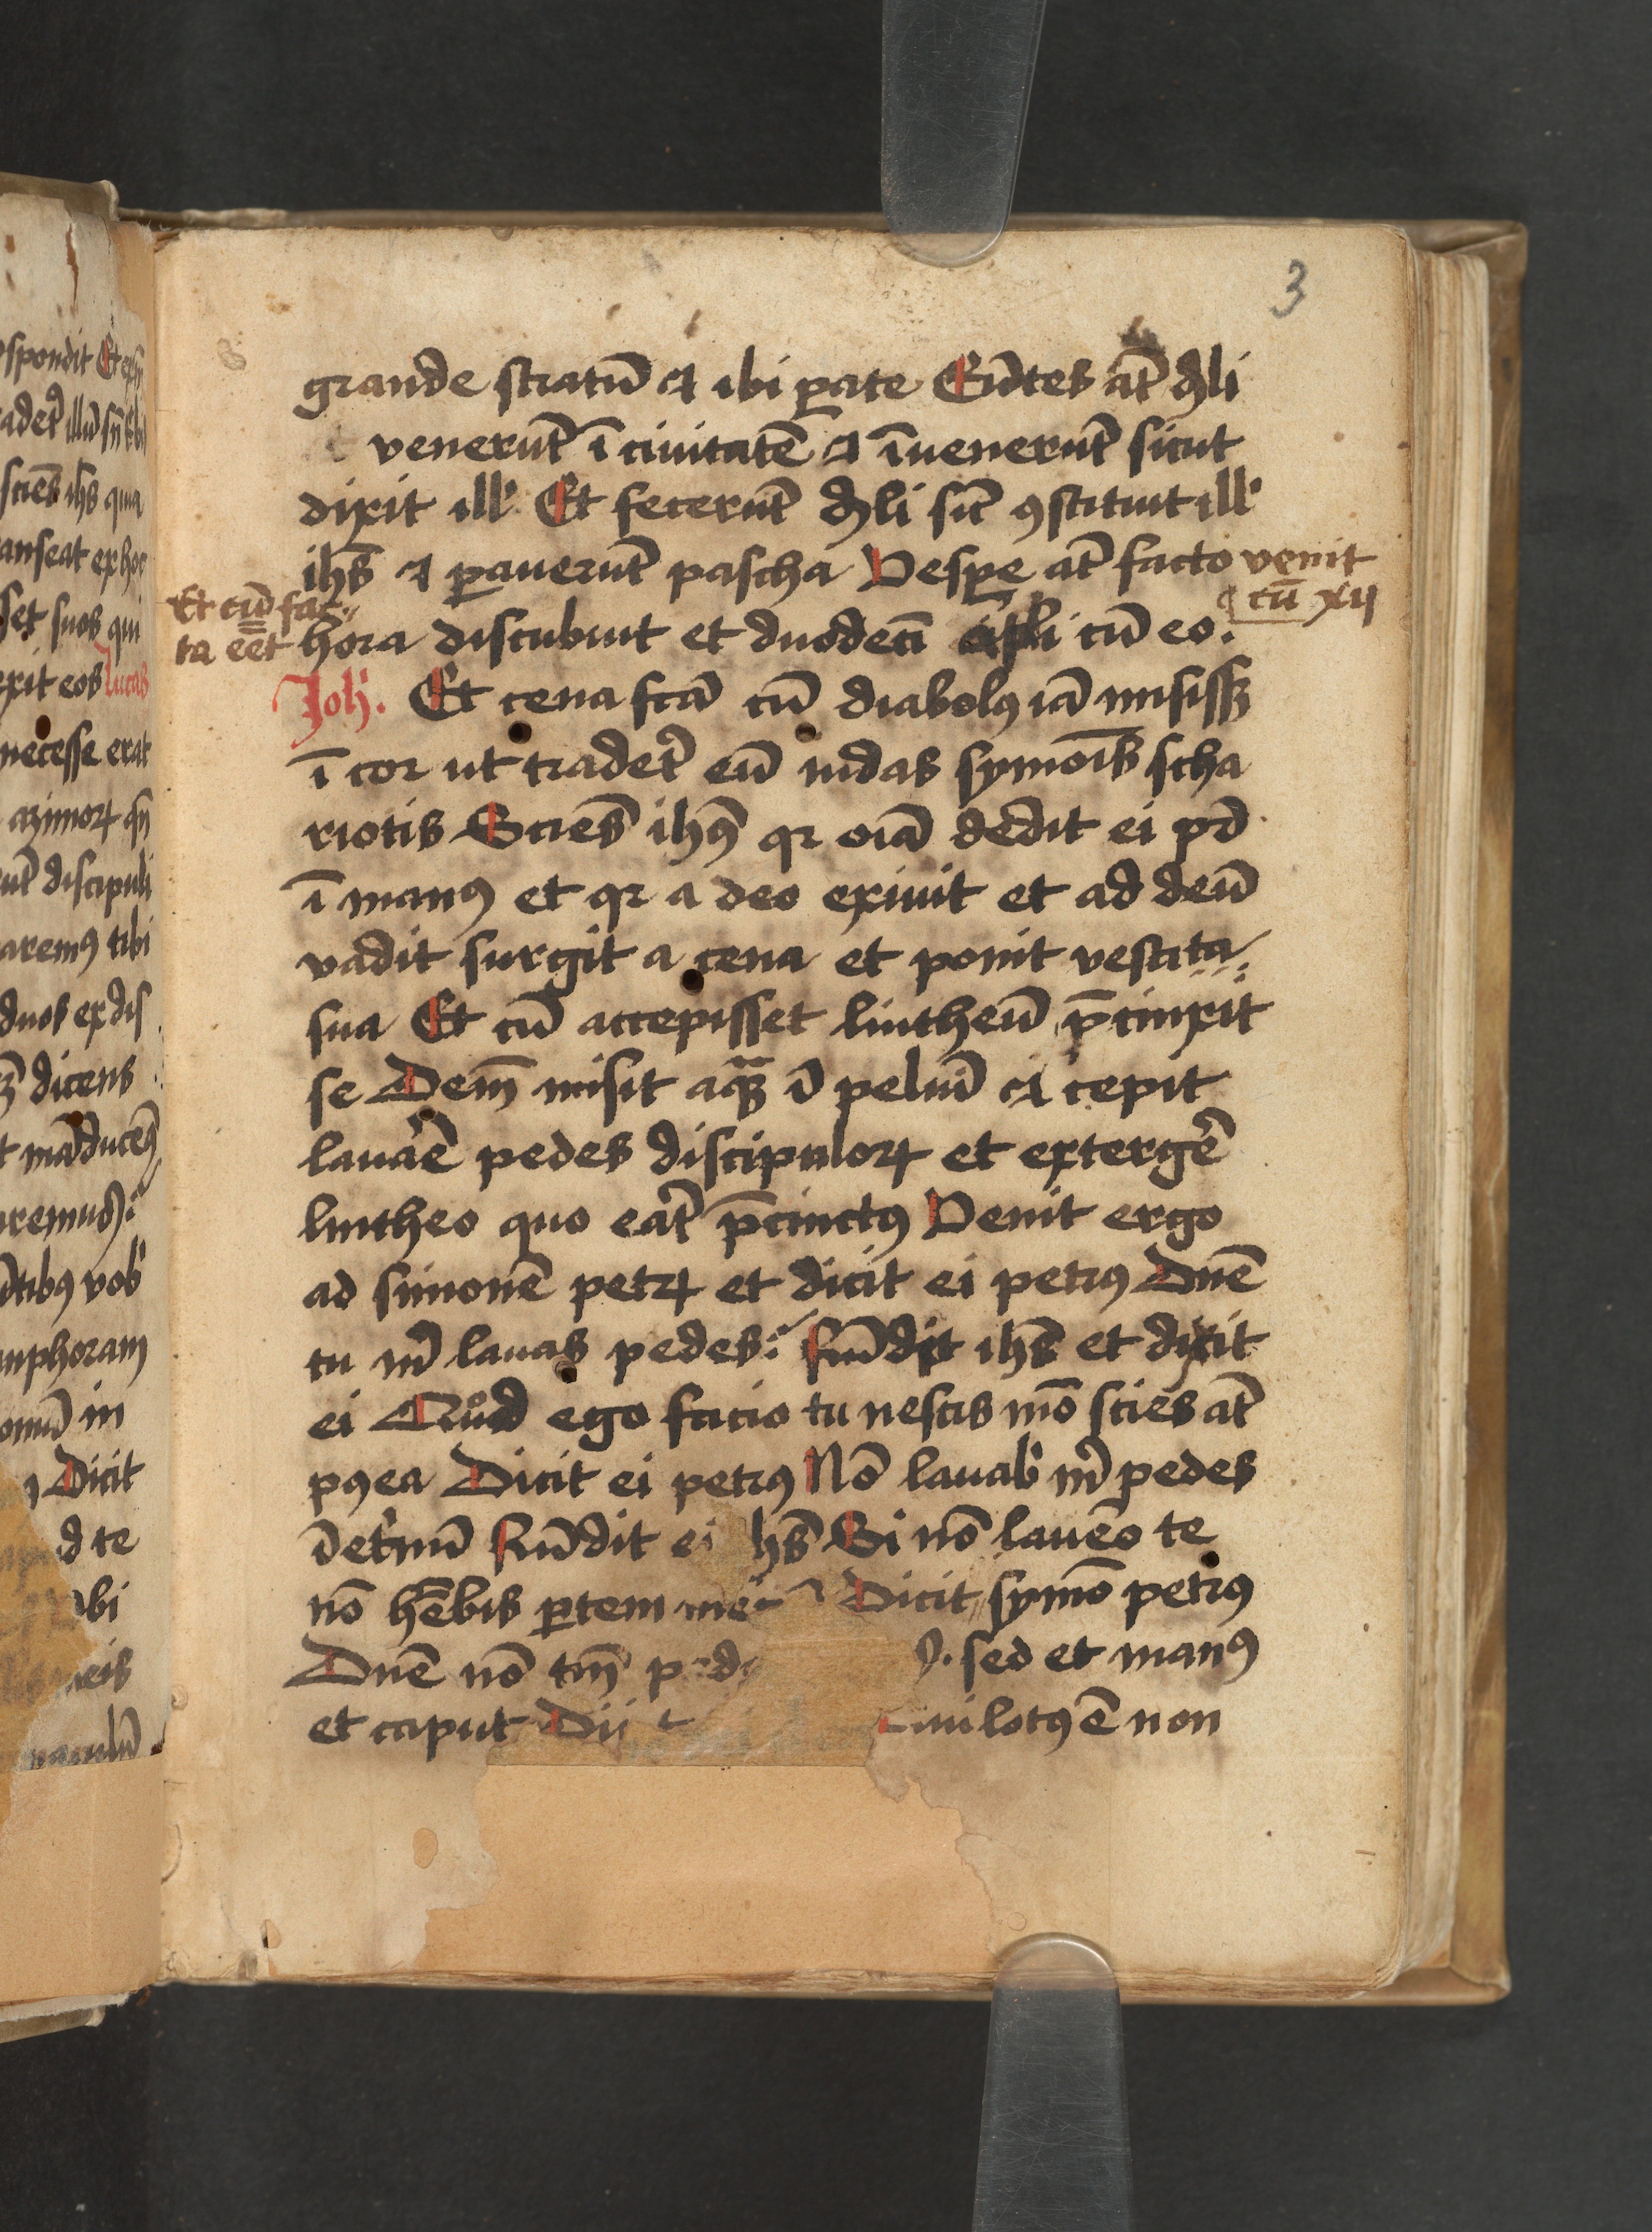 3
grande stratū ⁊ ibi ꝑate Eūtes at̄ dꝰli
venerūt ī ciuitatē ⁊ īuenerūt sicut
dixit ill' Et fecerūt dꝰli sic̄ ꝯstituit ill'
ihs̄ ⁊ ꝑauerūt pascha Vesꝑe at̄ facto venit
cū xij
Et cū fac
ta eēt hora discubuit et duodecī apl̄i cū eo.
Joh̄. Et cena fcā cū diabolꝰ iā misissꝫ
ī cor ut traderꝰ eū iudas symōis scha
riotis Sciēs ihꝰ qꝛ oīa dedit ei pꝰr
ī manꝰ et qꝛ a deo exiuit et ad deū
vadit surgit a cena et ponit vestita
sua Et cū accepisset lintheū p̄cinxit
se Dem̄ misit aquā ī peluī ⁊ cepit
lauaꝰe pedes discipuloꝝ et extergeꝰe
lintheo quo eat̄ p̄cinctꝰ Venit ergo
ad simonē petꝝ et dicit ei petrꝰ Dn̄e
tu m̄ lauas pedes: Rūdit ihs̄ et dixit
ei Quod ego facio tu nescis mō scies at̄
pꝰea Dicit ei petrꝰ Nō lauab' m̄ pedes
īet'nū Rūdit ei hs̄ Si nō lauēo te
nō hēbis ꝑtem mec̄ Dicit symō petrꝰ
Dn̄e nō tm̄ ped sed et manꝰ
et caput Di t ui lotꝰ ē non
spondit Et
sciēs ihs quia
anseat ex hoc
set suos qui
exit eos Lucas
necesse erat
azimoꝝ
ūt discipuli
aremꝰ tibi
duos ex dis
dicens
māducēꝰ
remus
ūtibꝰ vob'
mphoram
omū in
Dicit
d te
ibi
meis
naculū